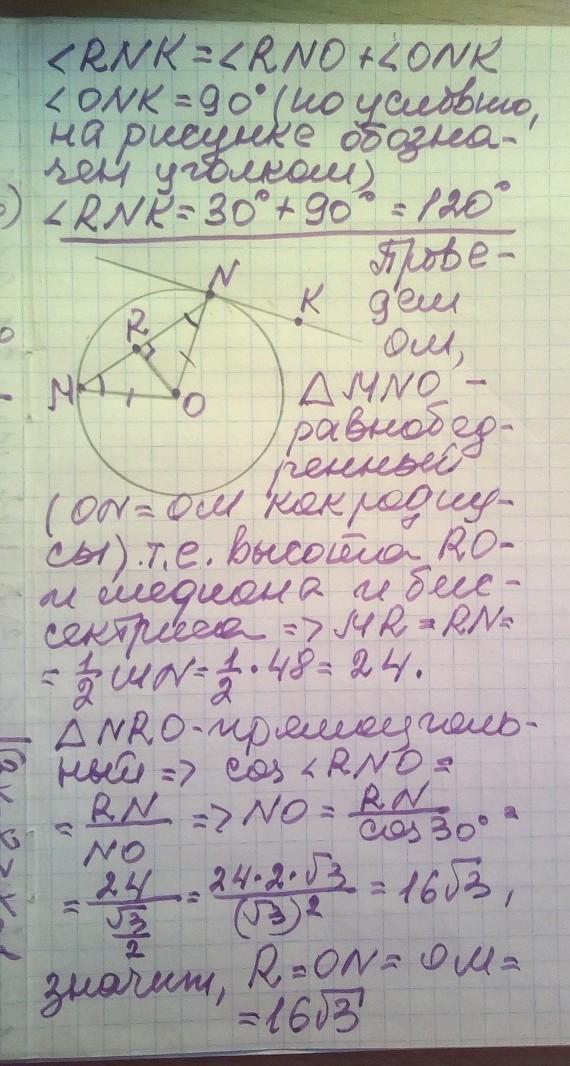 ∠RNK = ∠RNO + ∠ONK
∠ONK = 90° (по условию,
на рисунке обозна-
чен уголком)
∠RNK = 30° + 90° = 120°
Прове-
дем
OM,
N
K
R
M
O
△MNO -
равнобед-
ренный
(ON = OM как радиу-
сы). т.е. высота RO-
и медиана и бис-
сектриса => MR = RN =
= 1/2 MN = 1/2 · 48 = 24.
△NRO - прямоуголь-
ный => cos ∠RNO =
= RN/NO => NO = RN/cos 30° =
= 24/(√3/2) = 24·2·√3/(√3)² = 16√3,
значит, R = ON = OM =
= 16√3